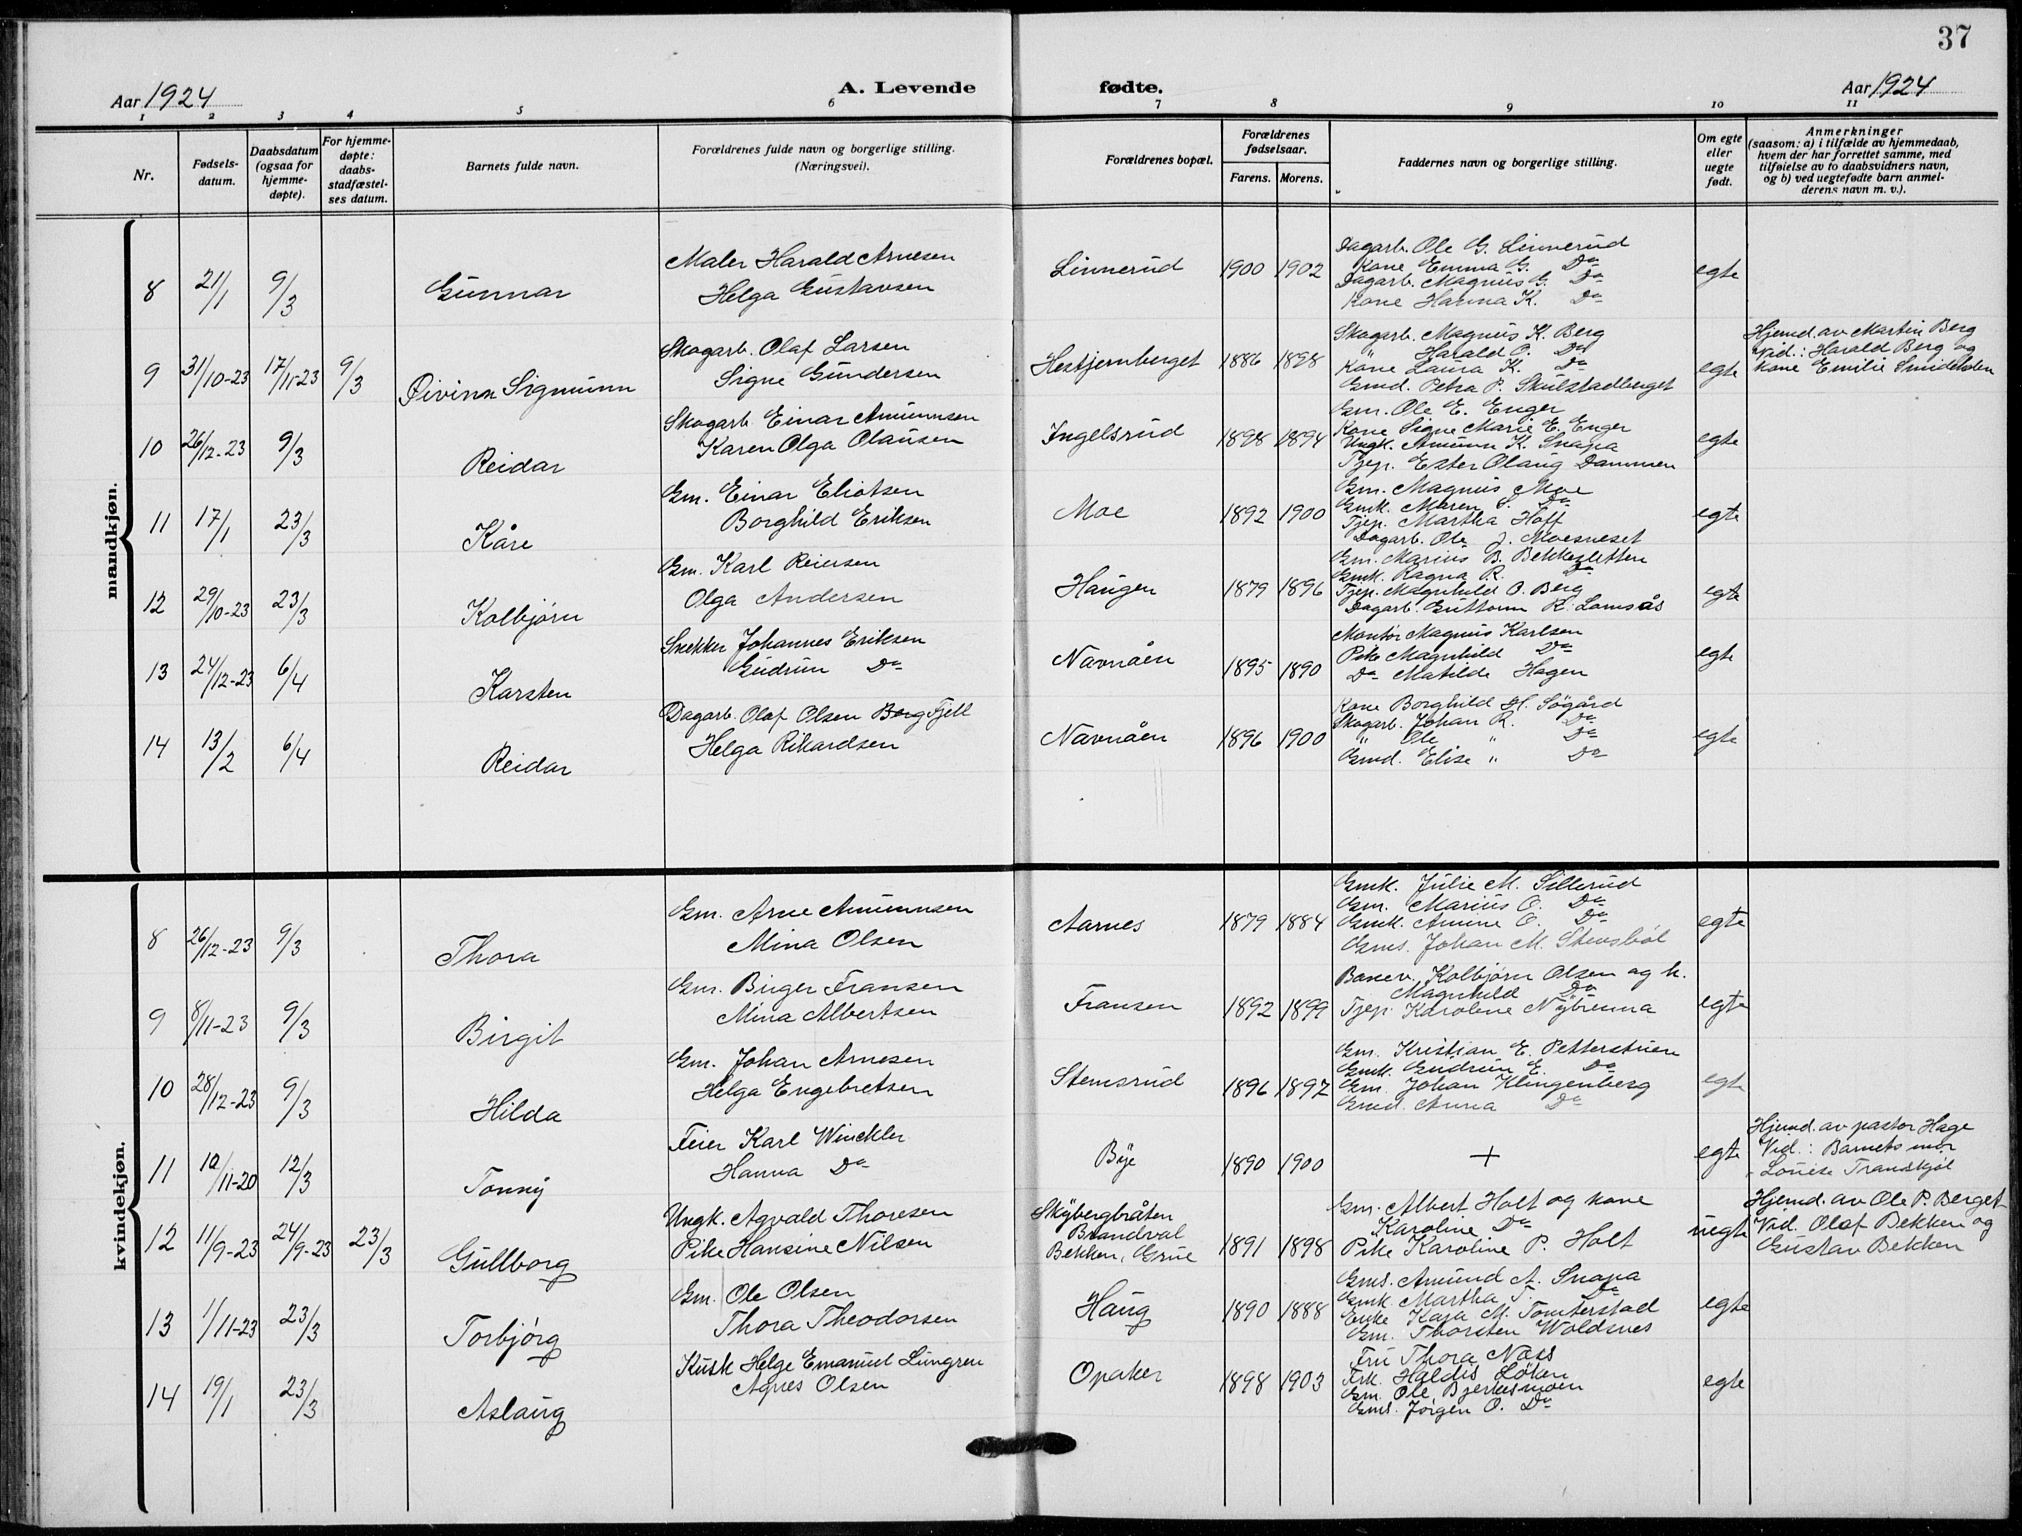 37
Aar 1924
A. Levende
fødte.
Aar 1924
1 2 3 4 5 6 7 8 9 10 11
Nr.
Fødsels-
datum.
Daabsdatum
(ogsaa for
hjemme-
døpte).
For hjemme-
døpte:
daabs-
stadfæstel-
ses datum.
Barnets fulde navn.
Forældrenes fulde navn og borgerlige stilling.
(Næringsvei).
Forældrenes bopæl.
Forældrenes
fødselsaar.
Farens. Morens.
Faddernes navn og borgerlige stilling.
Om egte
eller
uegte
født.
Anmerkninger
(saasom: a) i tilfælde av hjemmedaab,
hvem der har forrettet samme, med
tilføielse av to daabsvidners navn,
og b) ved uegtefødte barn anmel-
derens navn m. v.).
mandkjøn.
8 21/1 9/3 Gunnar
Maler Harald Arnesen
Helga Gustavsen
Linnerud 1900 1902
Dagarb. Ole G. Linnerud
Kone Emma G. Do
Dagarb. Magnus G. Do
Kone Hanna K. Do
egte
9 31/10-23 17/11-23 9/3 Øivinn Sigmunn
Skogarb. Olaf Larsen
Signe Gundersen
Hestjernberget 1886 1898
Skogarb. Magnus K. Berg
Harald O. Do
Kone Laura K. Do
Gmd. Petra P. Skulstadberget
egte
Hjemd. av Martin Berg
Vid.: Harald Berg og
Kone Emilie Smideholen
10 26/12-23 9/3 Reidar
Skogarb Einar Amunnsen
Karen Olga Olausen
Ingelsrud 1898 1894
Gm. Ole E. Enger
Kone Signe Marie E. Enger
Ungk. Amunn K. Snapa
Tjep. Ester Olaug Dammen
egte
11 17/1 23/3 Kåre
Gm. Einar Eliotsen
Borghild Eriksen
Moe 1892 1900
Gm. Magnus Moe
Gmk. Maren S. Do
Tjep. Martha Hoff
Dagarb. Ole J. Moesneset
egte
12 29/10-23 23/3 Kolbjørn
Gm. Karl Reiersen
Olga Andersen
Haugen 1879 1896
Gm. Marius B. Bekkesletten
Gmk. Ragna R. Do
Tjep. Magnhild O. Berg
Dagarb. Guttorm K. Lamsås
egte
13 24/12-23 6/4 Karsten
Snekker Johannes Eriksen
Gudrun Do
Navnåen 1895 1890
Montør Magnus Karlsen
Pike Magnhild Do
Do Matilde Hagen
egte
14 13/2 6/4 Reidar
Dagarb. Olaf Olsen Borg Fjell
Helga Rikardsen
Navnåen 1896 1900
Kone Borghild H. Søgård
Skogarb. Johan R. Do
" Ole " Do
Gmd. Elise " Do
egte
kvindekjøn.
8 26/12-23 9/3 Thora
Gm. Arne Amunnsen
Mina Olsen
Aarnes 1879 1884
Gmk. Julie M. Sillerud
Gm. Marius O. Do
Gmk. Amine O. Do
Gms. Johan M. Stensbøl
egte
9 8/11-23 9/3 Birgit
Gm. Birger Fransen
Mina Albertsen
Fransen 1892 1899
Banev. Kolbjørn Olsen og k.
Magnhild Do
Tjep. Karolene Nybrenna
egte
10 28/12-23 9/3 Hilda
Gm. Johan Arnesen
Helga Engebretsen
Stemsrud 1896 1897
Gm. Kristian E. Petterstuen
Gmk. Gudrun E. Do
Gm. Johan Klingenberg
Gmd. Anna Do
egte
11 10/11-20 12/3 Tonny
Feier Karl Winckler
Hanna Do
Bye 1890 1900
+
egte
Hjemd. av pastor Hage
Vid.: Barnets mor
Louise Trandkjøl
12 11/9-23 24/9-23 23/3 Gullborg
Ungk. Agvald Thoresen
Pike Hansine Nilsen
Skybergbråten
Brandval
Bekken, Grue
1891 1898
Gm. Albert Holt og kone
Karoline Do
Pike Karoline P. Holt
uegte
Hjemd. av Ole P. Berget
Vid. Olaf Bekken og
Gustav Bekken
13 1/11-23 23/3 Torbjørg
Gm. Ole Olsen
Thora Theodorsen
Haug 1890 1888
Gms. Amund A. Snapa
Gmk. Martha T. Do
Enke Kaja M. Tomterstad
Gm. Thorsten Woldsnes
egte
14 19/1 23/3 Aslaug
Kusk Helge Emanuel Lungren
Agnes Olsen
Opaker 1898 1903
Fru Thora Næss
Frk. Haldis Løken
Gm. Ole Bjerkesmoen
Gms. Jørgen O. Do
egte